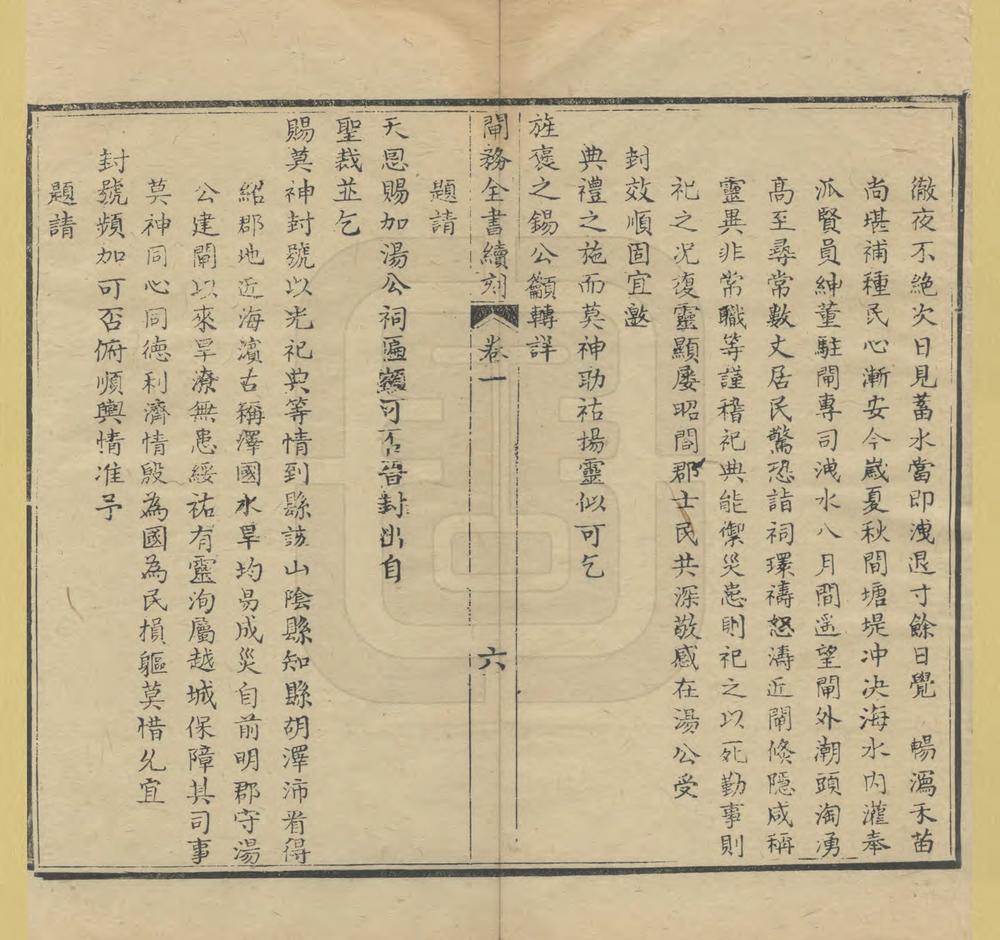 徹夜不絶次日見蓄水當即洩退寸餘日覺　暢瀉禾苗
尚堪補種民心漸安今嵗夏秋間塘堤冲决海水内灌奉
派賢員紳董駐閘專司洩水八月間遥望閘外潮頭洶湧
髙至尋常數丈居民驚恐詣祠環禱怒濤近閘倐隠咸稱
靈異非常職等謹稽祀典能禦災患則祀之以死勤事則
祀之况復靈顯屡昭閤郡士民共深敬感在湯公受
封效順固宜邀
典禮之施而莫神助祐揚靈似可乞
旌褒之錫公籲轉詳
閘務全書續刻　卷一　六
題請
天恩賜加湯公祠匾額可否晉封出自
聖裁並乞
賜莫神封號以光祀典等情到縣該山陰縣知縣胡澤沛看得
紹郡地近海濱古稱澤國水旱均易成災自前明郡守湯
公建閘以來旱潦無患綏祐有靈洵屬越城保障其司事
莫神同心同德利濟情殷為國為民損軀莫惜允宜
封號頻加可否俯順輿情准予
題請